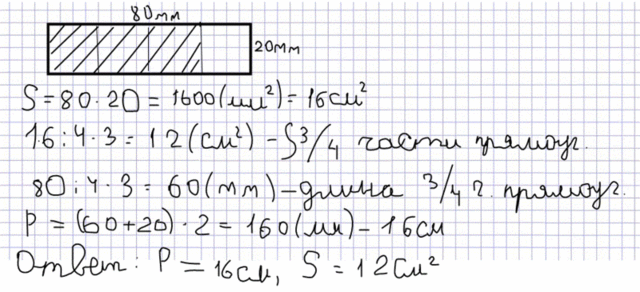 80мм
20мм
S = 80 · 20 = 1600 (мм²) = 16 см²
16 : 4 · 3 = 12 (см²) – S 3/4 части прямоуг.
80 : 4 · 3 = 60 (мм) – длина 3/4 ч. прямоуг.
P = (60+20) · 2 = 160 (мм) – 16 см
Ответ: P = 16 см, S = 12 см²